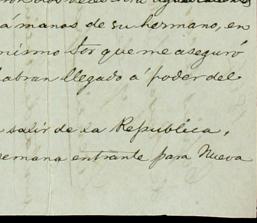 á manos de su hermano, en
mismo Sor que me aseguró
habran llegado á poder del
salir de la Republica,
semana entrante para Nueva